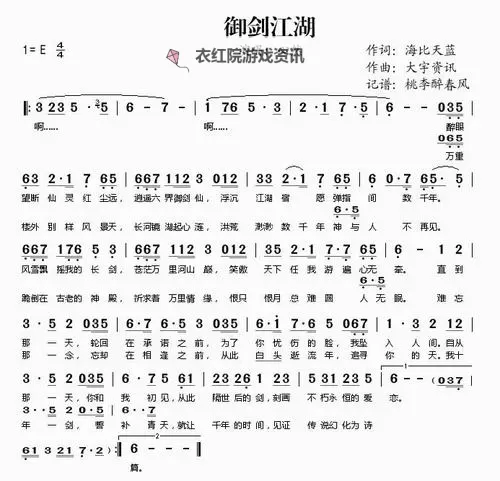 御剑江湖
1=E 4/4
衣红院游戏资讯
作词：海比天蓝
作曲：大宇资讯
记谱：桃李醉春风
‖: 3 235 5 · 5 | 6 - 7 - | 1 176 5 · 3 | 2 · 1 · 7 · 5 | 6 - - 035 |
啊…… 啊…… 醉眼
065
万重
63 2·1 7 65 | 667 113 012 | 33 2·1 7 65 | 65· 5
望断 仙 灵 红 尘远，逍遥六 界御剑 仙，浮沉 江湖 宿 愿 弹指 间 数 千年。
楼外 别 样 风 景天，长河镜 湖起心 涟，洪荒 渺渺 数 千年 神与 人 不再 见。
667 176 5 3 | 667 113 012 | 33 2·1 7 65 | 6 - - 035
风雪飘 摇我的 长 剑，苍茫万 里河山 巅，笑傲 天下 任 我 游 遍心无 牵。 直到
跪倒在 古老的 神 殿，祈求着 万里情 缘，恨只 恨月 总 难 圆 人 无眠。 难忘
3 · 5 2 035 | 6·7 6·5 3 035 | 6·1 7 035 | 2 · 1 2 035
那 一 天，轮回 在 承诺 之 前，为了 你 忧 伤的 脸，我坠 入 人 间。自从
那 一 念，忘却 在 相逢 之 前，从此 白头 逝 流年，追寻 你 的 天。我十
那 一 天，你和 我 初见，从此 隔世 后的 剑，刻画 不朽 永恒的 爱 恋。
年 一 剑，誓 补 青天，就让 千年的 时间，见证 传说 幻化为 诗
61 3 21 7 2 · :‖ 6 - - - ‖
篇。